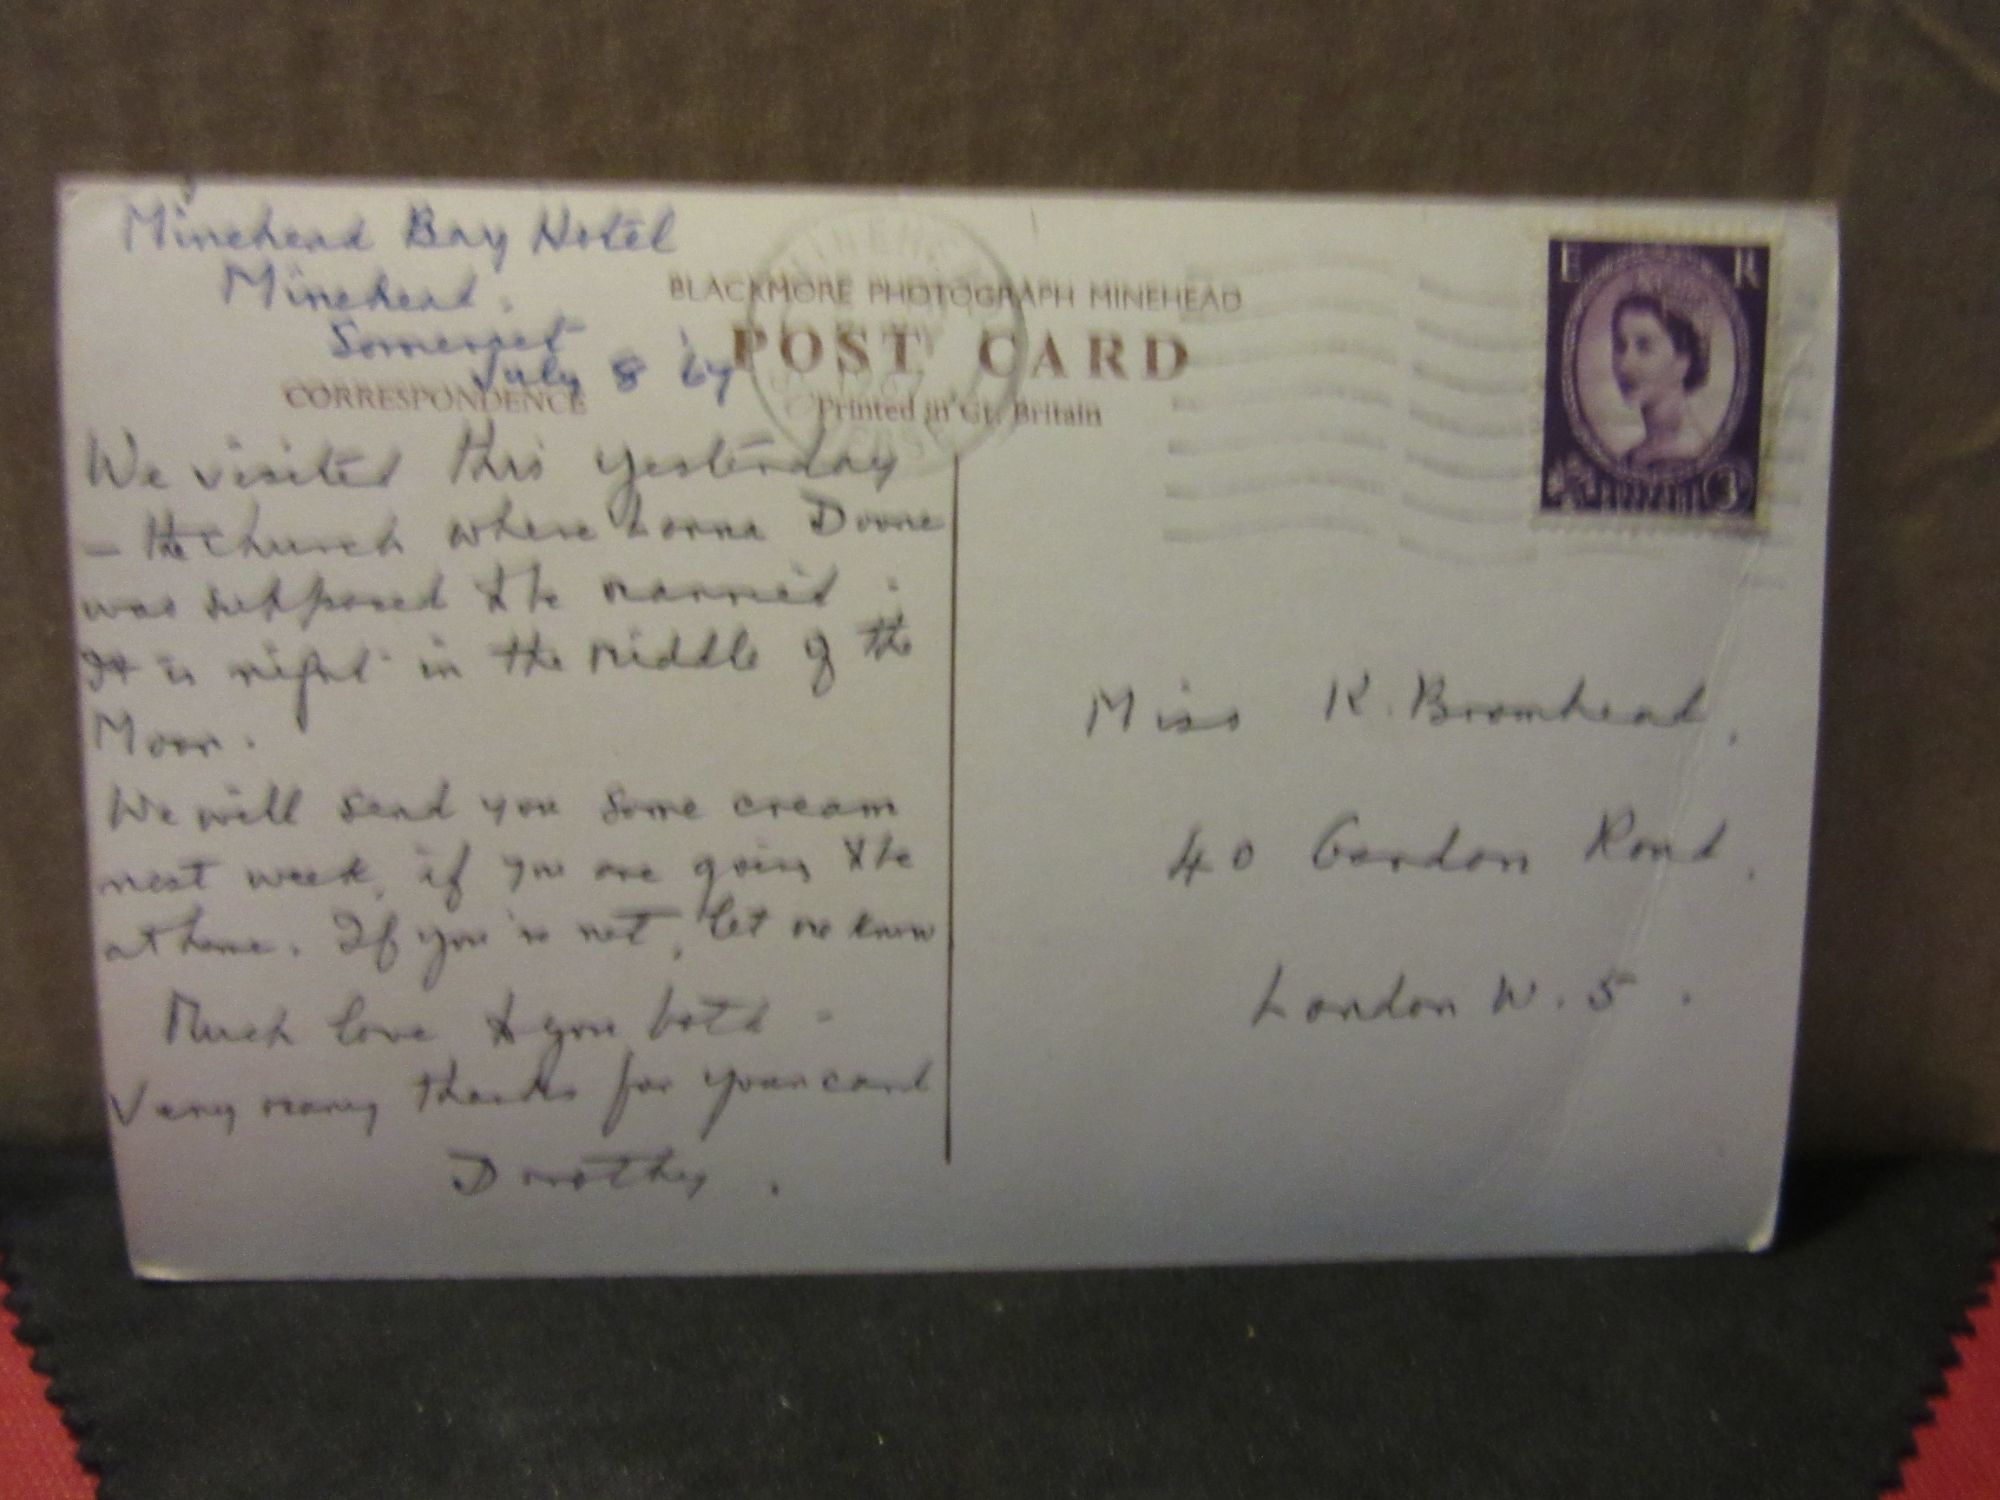 Minehead Bay Hotel
Minehead.
Somerset
July 8 '67
BLACKMORE PHOTOGRAPH MINEHEAD
POST CARD
CORRESPONDENCE
Printed in Gt. Britain
E R
3
We visited this yesterday
– the church where Lorna Doone
was supposed to be married.
It is right in the middle of the
Moor.
We will send you some cream
next week, if you are going to be
at home. If you're not, let me know
Much love to you both –
Very many thanks for your card
Dorothy.
Miss K. Bromhead,
40 Gordon Road,
London W. 5.